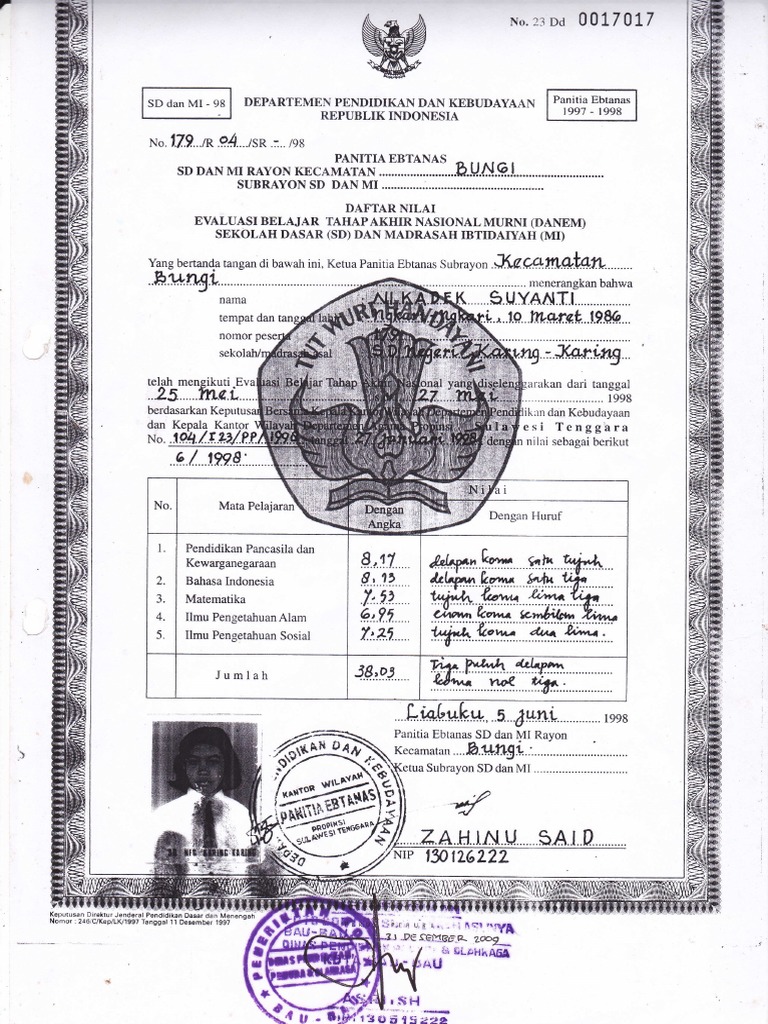 No. 23 Dd 0017017
SD dan MI - 98
DEPARTEMEN PENDIDIKAN DAN KEBUDAYAAN
REPUBLIK INDONESIA
Panitia Ebtanas
1997 - 1998
No. 179 /R 04 /SR - /98
PANITIA EBTANAS
SD DAN MI RAYON KECAMATAN BUNGI
SUBRAYON SD DAN MI
DAFTAR NILAI
EVALUASI BELAJAR TAHAP AKHIR NASIONAL MURNI (DANEM)
SEKOLAH DASAR (SD) DAN MADRASAH IBTIDAIYAH (MI)
Yang bertanda tangan di bawah ini, Ketua Panitia Ebtanas Subrayon Kecamatan
Bungi menerangkan bahwa
nama NI KADEK SUYANTI
tempat dan tanggal lahir Ngkari-Ngkari, 10 Maret 1986
nomor peserta 179
sekolah/madrasah asal SD Negeri Karing-Karing
TUT WURI HANDAYANI
telah mengikuti Evaluasi Belajar Tahap Akhir Nasional yang diselenggarakan dari tanggal
25 Mei 27 Mei 1998
berdasarkan Keputusan Bersama Kepala Kantor Wilayah Departemen Pendidikan dan Kebudayaan
dan Kepala Kantor Wilayah Departemen Agama Propinsi Sulawesi Tenggara
No. 104/I23/PP/1998 tanggal 27 Januari 1998 dengan nilai sebagai berikut
6 / 1998
No. Mata Pelajaran Nilai
Dengan Angka Dengan Huruf
1. Pendidikan Pancasila dan Kewarganegaraan 8,17 delapan koma satu tujuh
2. Bahasa Indonesia 8,13 delapan koma satu tiga
3. Matematika 7,53 tujuh koma lima tiga
4. Ilmu Pengetahuan Alam 6,95 enam koma sembilan lima
5. Ilmu Pengetahuan Sosial 7,25 tujuh koma dua lima.
Jumlah 38,03 Tiga puluh delapan
koma nol tiga.
Liabuku, 5 Juni 1998
Panitia Ebtanas SD dan MI Rayon
Kecamatan Bungi
Ketua Subrayon SD dan MI
KANTOR WILAYAH
PANITIA EBTANAS
PROPINSI
SULAWESI TENGGARA
ZAHINU SAID
NIP 130126222
Keputusan Direktur Jenderal Pendidikan Dasar dan Menengah
Nomor : 246/C/Kep/LK/1997 Tanggal 11 Desember 1997
31 DESEMBER 2009
BAU-BAU